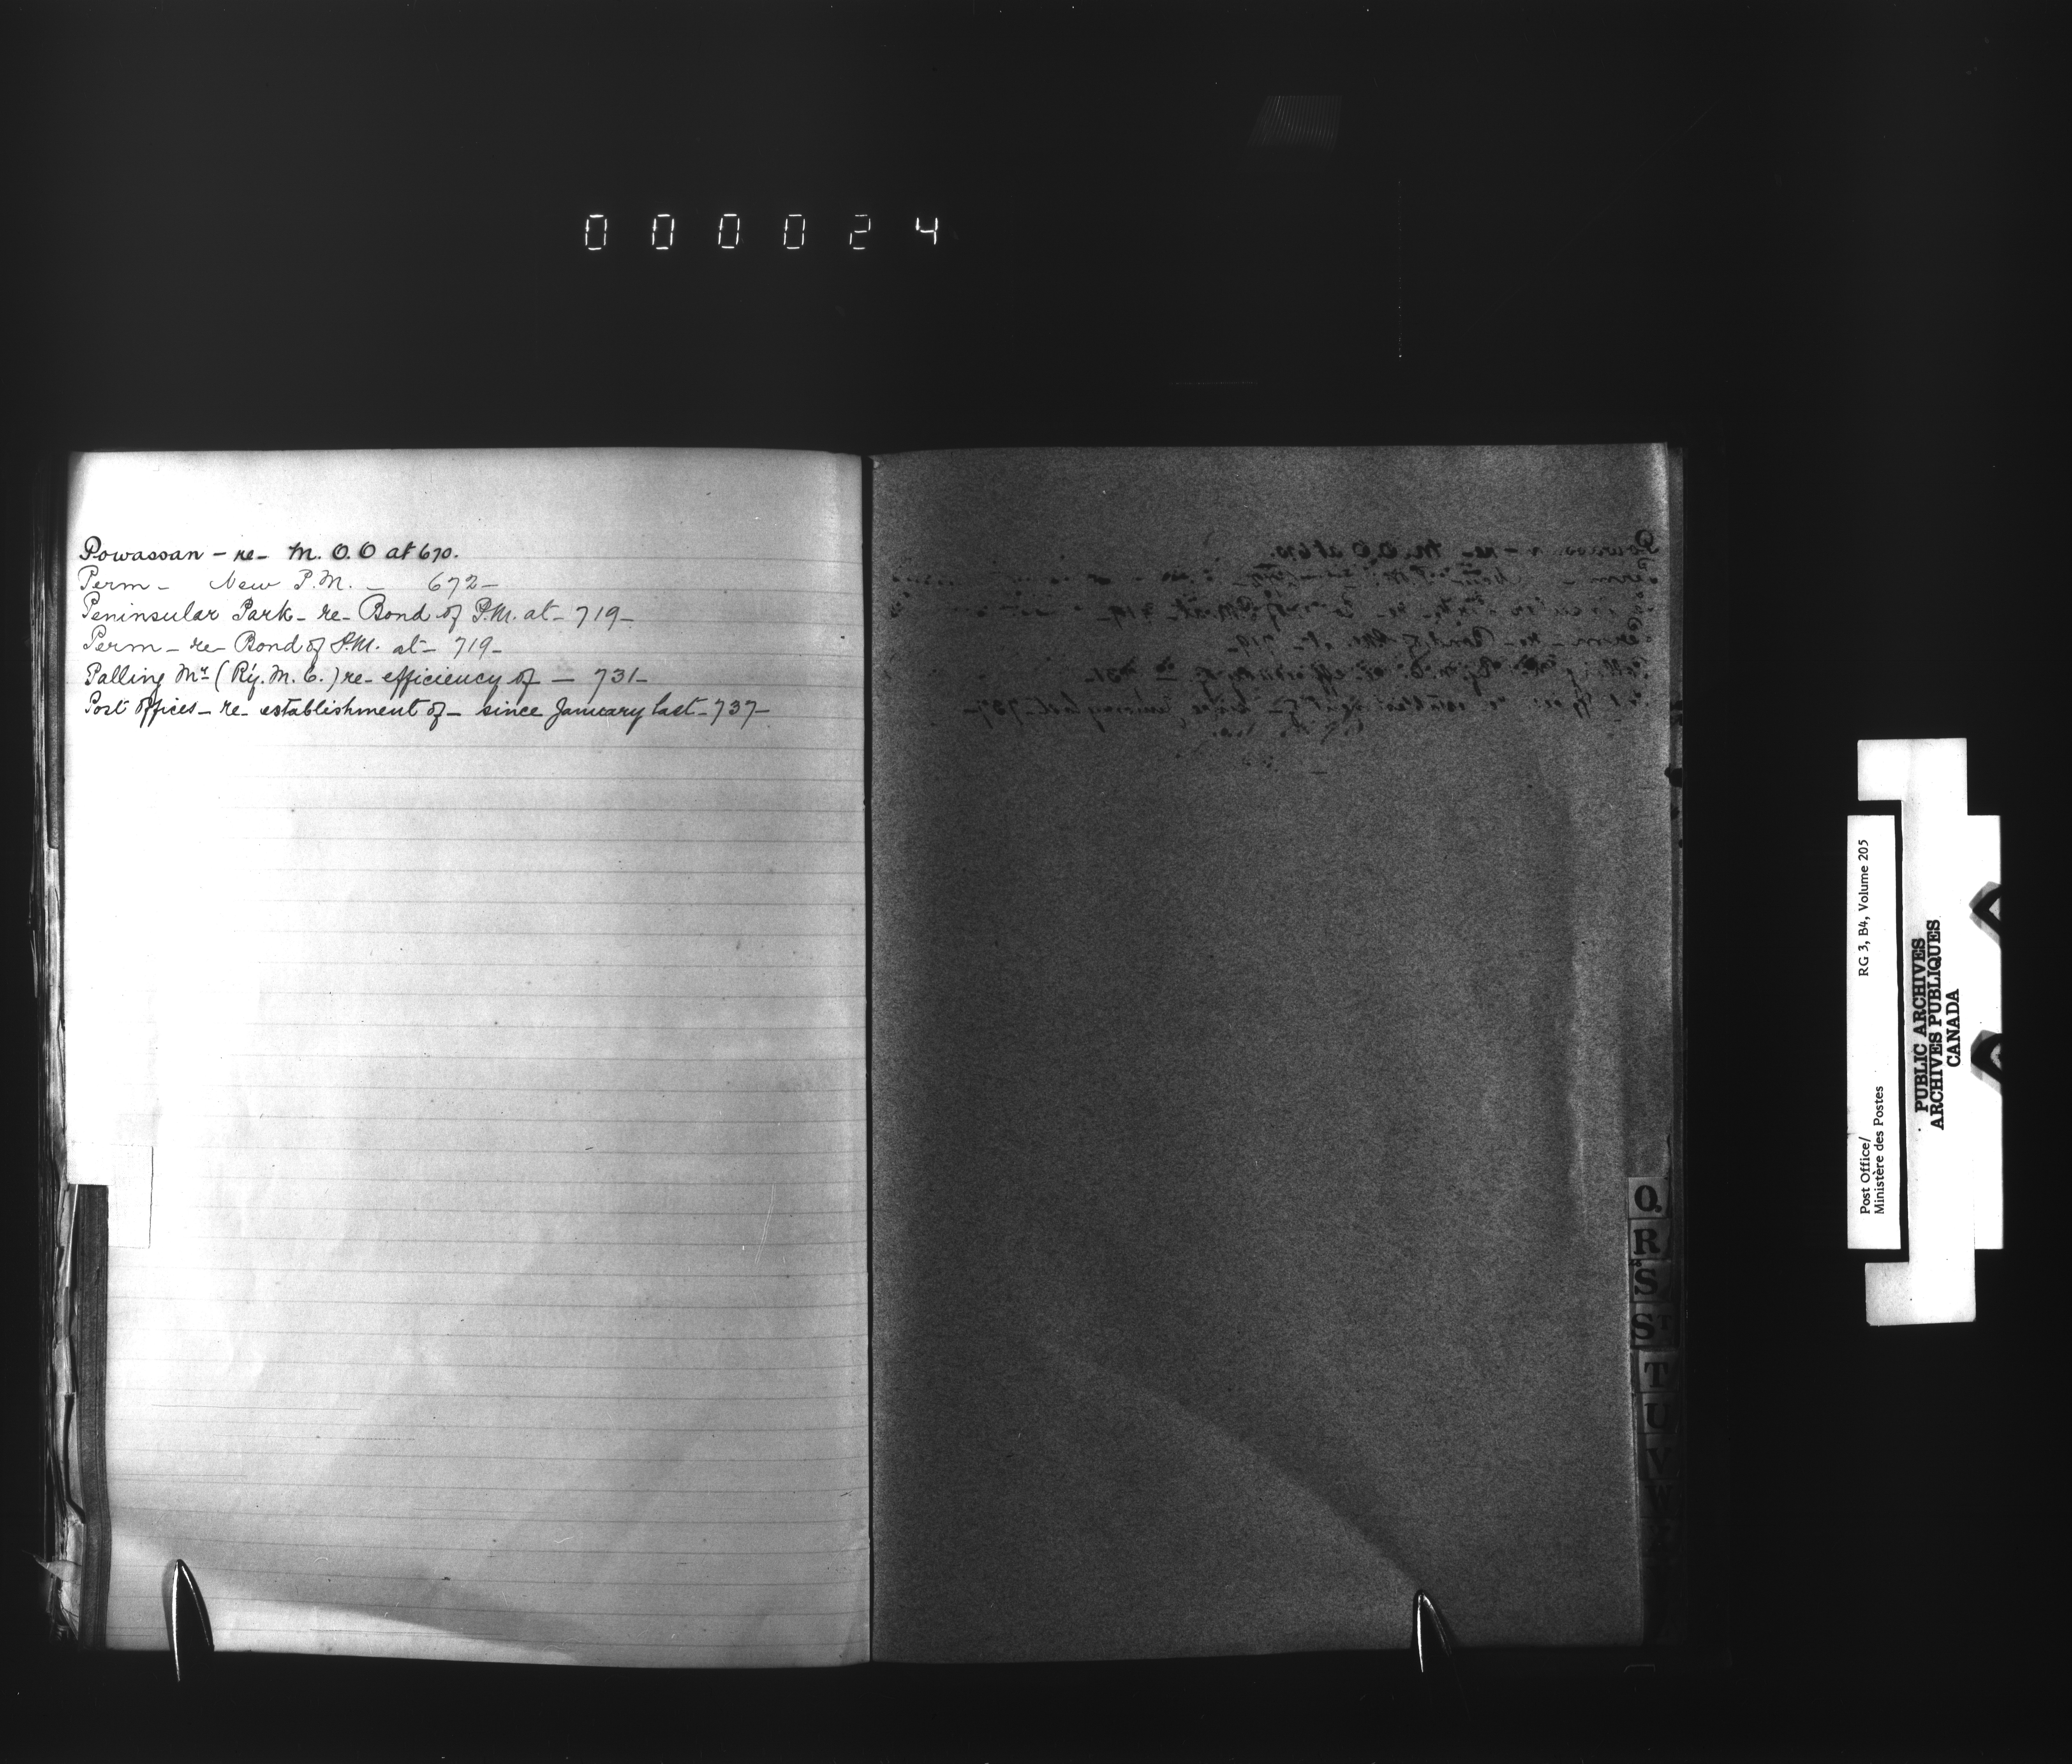 000024
Powassan – re – M. O. O at 670.
Perm – New P.M. – 672 –
Peninsular Park – re – Bond of P.M. at – 719 –
Perm – re – Bond of P.M. at – 719 –
Palling Mr (Ry. M. C.) re – efficiency of – 731 –
Post Offices – re – establishment of – since January last – 737 –
Q
R
S
ST
T
U
V
W
Post Office/
Ministère des Postes
RG 3, B4, Volume 205
PUBLIC ARCHIVES
ARCHIVES PUBLIQUES
CANADA